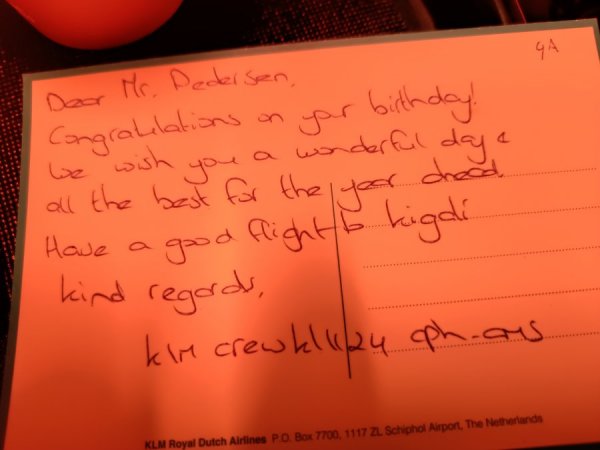 9A
Dear Mr. Pedersen,
Congratulations on your birthday!
We wish you a wonderful day &
all the best for the year ahead
Have a good flight to Kigali
kind regards,
KLM crew kl1124 cph-ams
KLM Royal Dutch Airlines P.O. Box 7700, 1117 ZL Schiphol Airport, The Netherlands